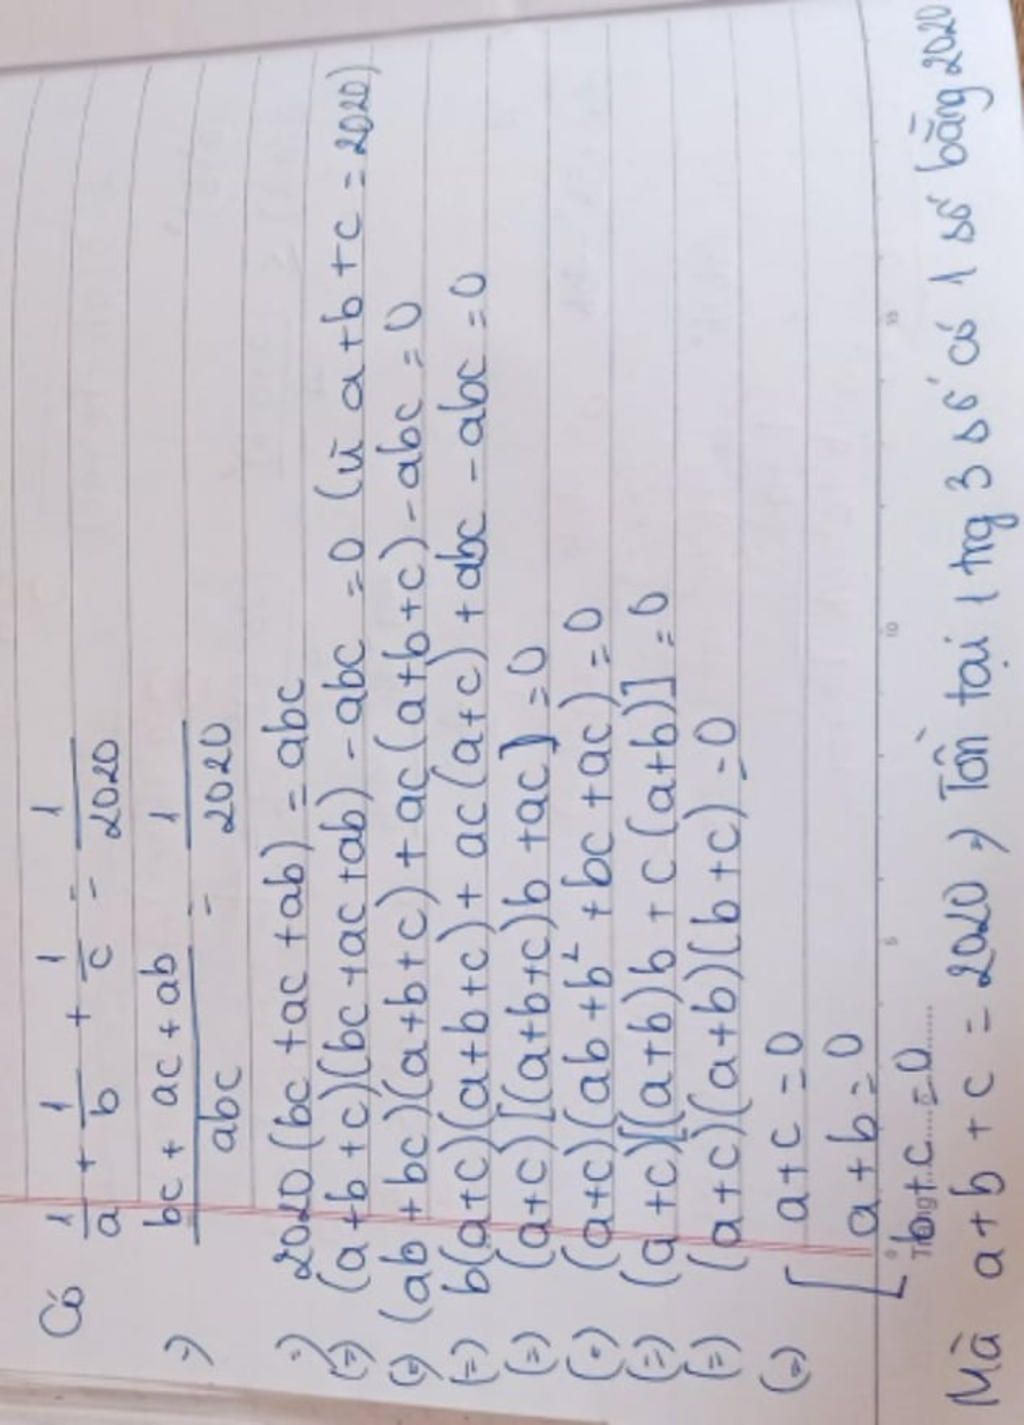 Có 1/a + 1/b + 1/c = 1/2020
=> (bc + ac + ab)/abc = 1/2020
=> 2020(bc + ac + ab) = abc
(=) (a+b+c)(bc+ac+ab) - abc = 0 (vì a+b+c = 2020)
(=) (ab + bc)(a+b+c) + ac(a+b+c) - abc = 0
(=) b(a+c)(a+b+c) + ac(a+c) + abc - abc = 0
(=) (a+c)[(a+b+c)b + ac] = 0
(=) (a+c)(ab + b² + bc + ac) = 0
(=) (a+c)[(a+b)b + c(a+b)] = 0
(=) (a+c)(a+b)(b+c) = 0
(=) [ a+c = 0
a+b = 0
b+c = 0
0 5 10 15
Mà a+b+c = 2020 => Tồn tại 1 trg 3 số có 1 số bằng 2020